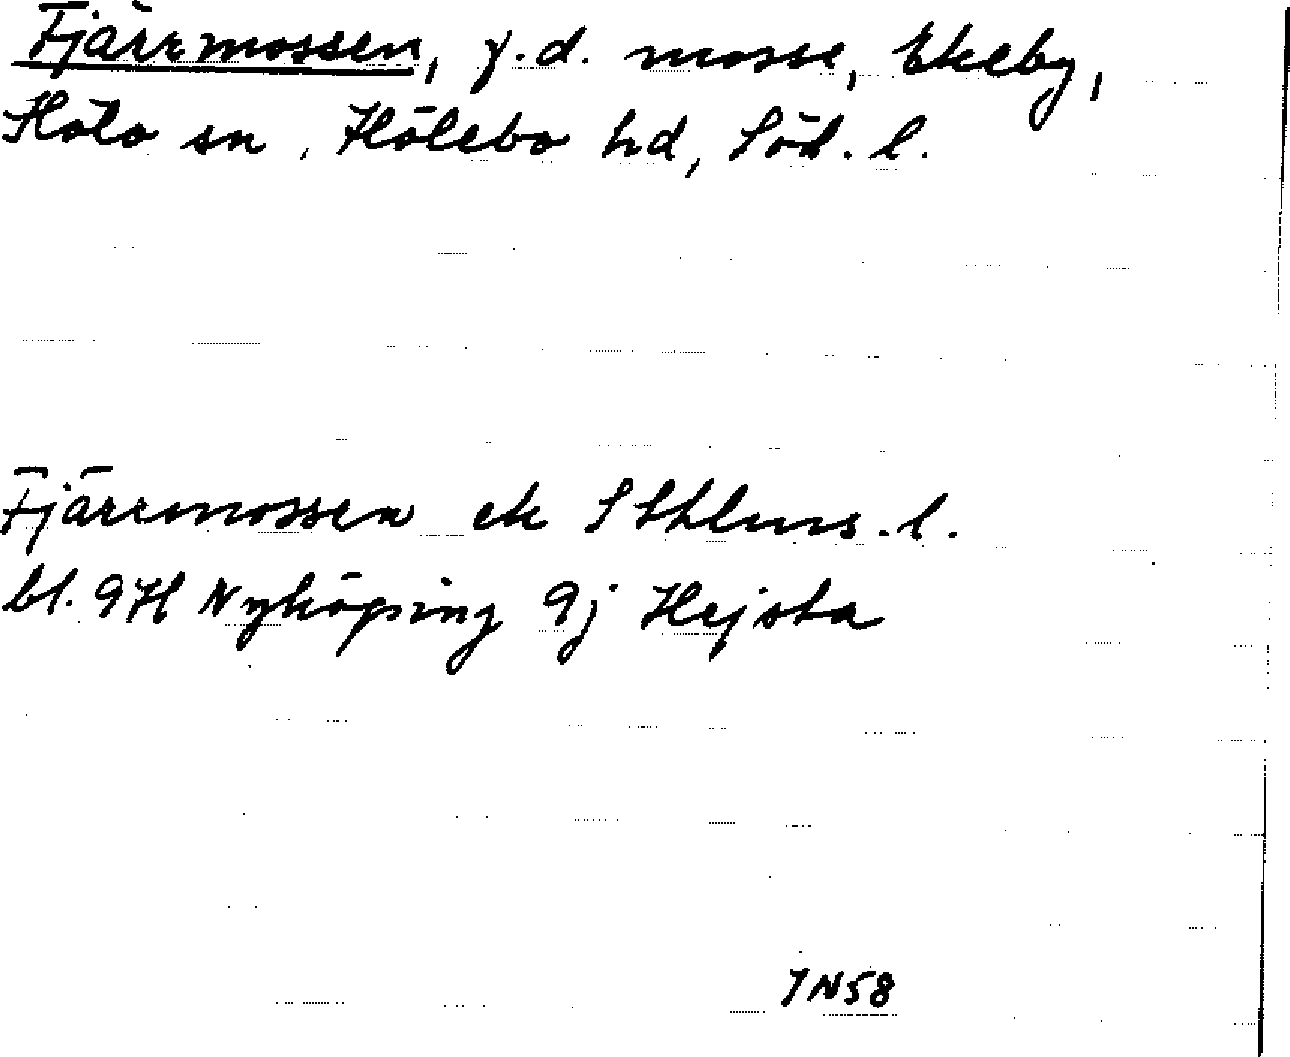 Fjärrmossen, f.d. mosse, Ekeby,
Hölö sn, Hölebo hd, Söd. l.
Fjärrmossen ek Sthlms. l.
bl. 9H Nyköping 9j Hejsta
JN58